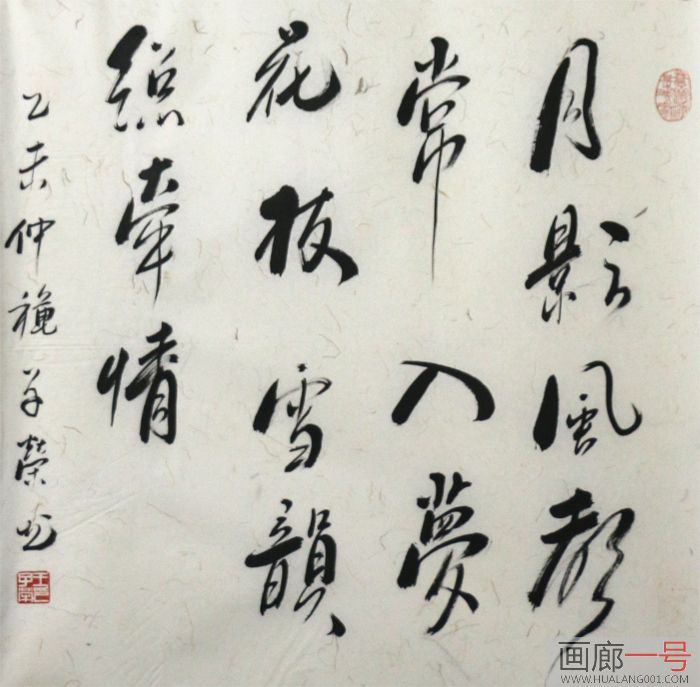 月影風聲
常入夢
花枝雪韻
總牽情
乙未仲穐子榮书
画廊一号
WWW.HUALANG001.COM